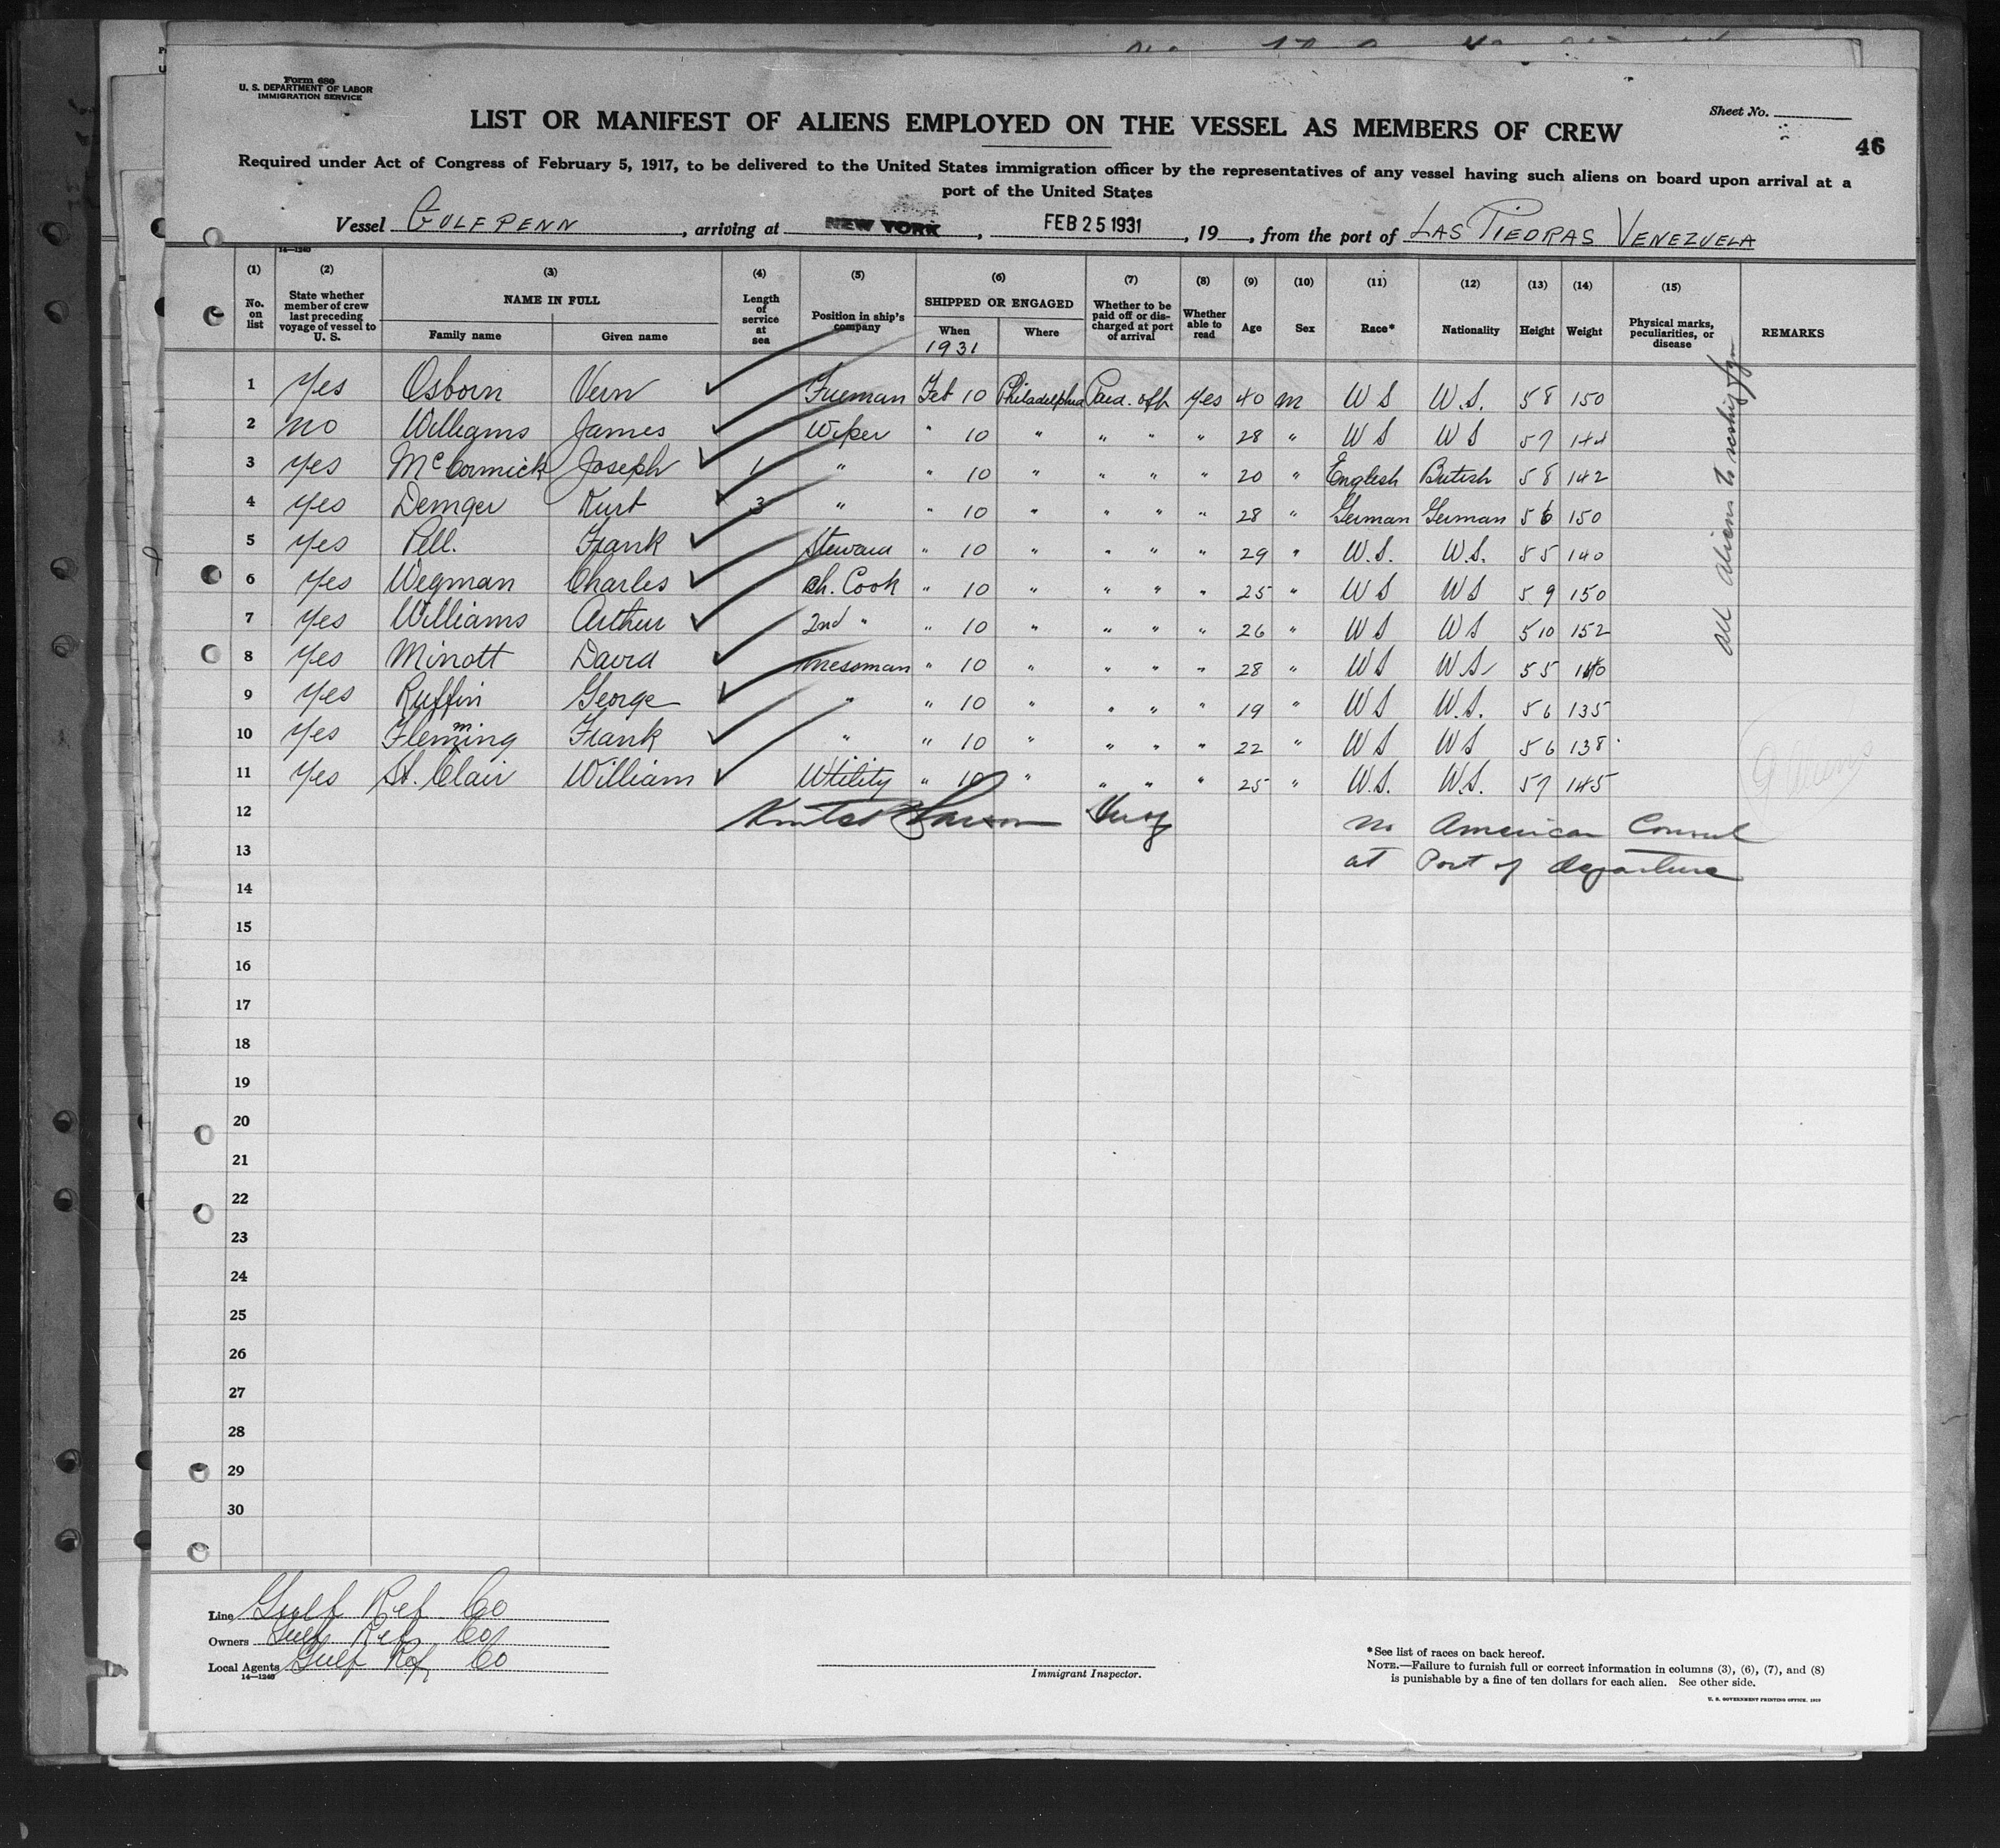 Form 680
U. S. DEPARTMENT OF LABOR
IMMIGRATION SERVICE
Sheet No.
LIST OR MANIFEST OF ALIENS EMPLOYED ON THE VESSEL AS MEMBERS OF CREW
46
Required under Act of Congress of February 5, 1917, to be delivered to the United States immigration officer by the representatives of any vessel having such aliens on board upon arrival at a
port of the United States
Vessel GULFPENN, arriving at NEW YORK, FEB 25 1931, 19, from the port of LAS PIEDRAS VENEZUELA
14—1240
(1) (2) (3) (4) (5) (6) (7) (8) (9) (10) (11) (12) (13) (14) (15)
No. on list State whether member of crew last preceding voyage of vessel to U. S. NAME IN FULL Family name Given name Length of service at sea Position in ship's company SHIPPED OR ENGAGED When Where Whether to be paid off or discharged at port of arrival Whether able to read Age Sex Race* Nationality Height Weight Physical marks, peculiarities, or disease REMARKS
1931
1 Yes Osborn Vern Fireman Feb 10 Philadelphia Paid off Yes 40 m W S W.S. 5 8 150
2 no Williams James Wiper " 10 " " " " 28 " W S W S 5 7 144
3 Yes McCormick Joseph 1 " " 10 " " " " 20 " English British 5 8 142
4 Yes Demger Kurt 3 " " 10 " " " " 28 " German German 5 6 150
5 Yes Pell. Frank Steward " 10 " " " " 29 " W.S. W.S. 5 5 140
6 Yes Wegman Charles Ch. Cook " 10 " " " " 25 " W S W S 5 9 150
7 Yes Williams Arthur 2nd " " 10 " " " " 26 " W S W S 5 10 152
8 Yes Minott David Messman " 10 " " " " 28 " W S W S 5 5 140
9 Yes Ruffin George " " 10 " " " " 19 " W S W.S. 5 6 135
10 Yes Flemming Frank " " 10 " " " " 22 " W S W S 5 6 138
11 Yes St. Clair William Utility " 10 " " " " 25 " W.S. W.S. 5 7 145
12 no American Consul
13 at Port of departure
14
15
16
17
18
19
20
21
22
23
24
25
26
27
28
29
30
all aliens to reship fgn
Line Gulf Ref Co
Owners Gulf Ref Co
Local Agents Gulf Ref Co
14—1240
Immigrant Inspector.
*See list of races on back hereof.
NOTE.—Failure to furnish full or correct information in columns (3), (6), (7), and (8)
is punishable by a fine of ten dollars for each alien. See other side.
U. S. GOVERNMENT PRINTING OFFICE